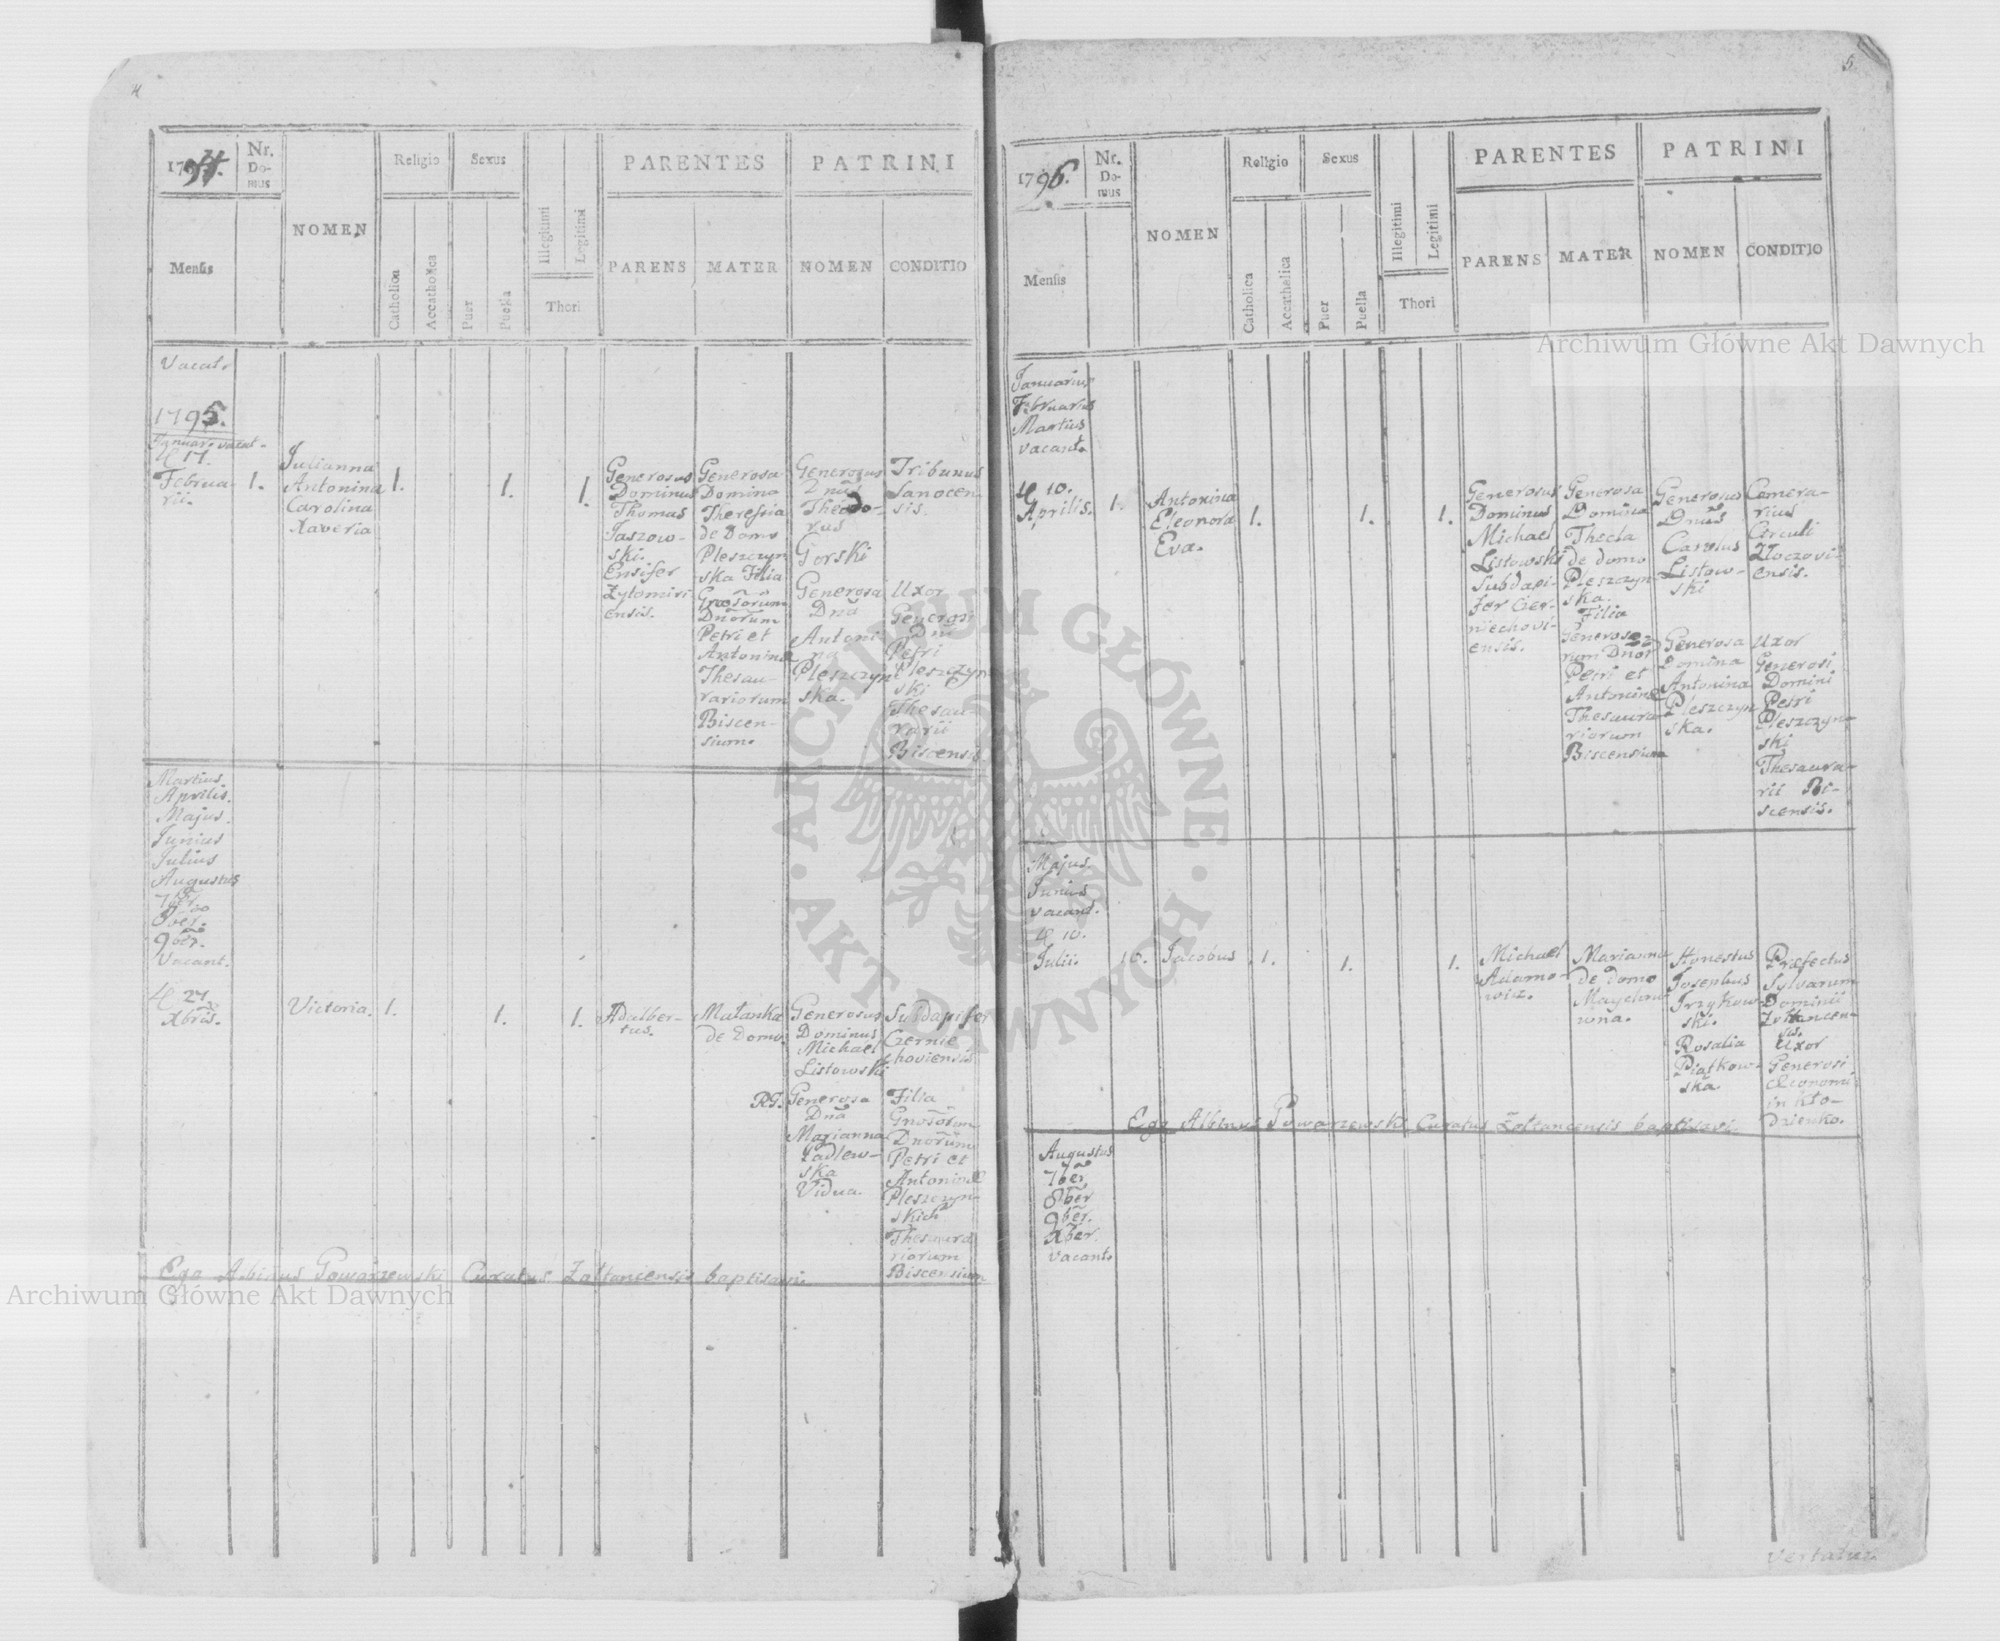 4
1794.
Nr. Domus
NOMEN
Religio
Sexus
PARENTES
PATRINI
Mensis
Catholica
Accatholica
Puer
Puella
Illegitimi
Legitimi
Thori
PARENS
MATER
NOMEN
CONDITIO
Vacat.
1795.
Januar. vacat.
17.
Februa-
rii.
1.
Julianna
Antonina
Carolina
Xaveria
1.
1.
1.
Generosus
Dominus
Thomas
Jaszow-
ski.
Ensifer
Zytomiri
ensis.
Generosa
Domina
Theressia
de Domo
Pleszczyn
ska Filia
Gnosorum
Dnorum
Petri et
Antonina
Thesau-
rariorum
Biscen-
sium.
Generosus
Dnus
Theodo-
rus
Gorski
Generosa
Dna
Antoni
na
Pleszczyn
ska.
Tribunus
Sanocen-
sis.
Uxor
Generosi
Dni
Petri
Pleszczyn
ski
Thesau-
rarii
Biscensis
Martius.
Aprilis.
Majus.
Junius
Julius
Augustus
7ber.
8ber.
9ber.
Vacant.
27
Xbris.
Victoria.
1.
1.
1.
Adalber-
tus.
Malanka
de Domo.
Generosus
Dominus
Michael
Listowski
Subdapifer
Czernie
choviensis
RG. Generosa
Dna
Marianna
Padlew-
ska
Vidua.
Filia
Gnosorum
Dnorum
Petri et
Antoninæ
Pleszczyn-
skich
Thesaura
riorum
Biscensium
Ego Albinus Powarzewski Curatus Zoltancensis baptisavi.
5
1796.
Nr. Domus
NOMEN
Religio
Sexus
PARENTES
PATRINI
Mensis
Catholica
Accatholica
Puer
Puella
Illegitimi
Legitimi
Thori
PARENS
MATER
NOMEN
CONDITIO
Januarius
Februarius
Martius
vacant.
10.
Aprilis.
1.
Antonina
Eleonora
Eva.
1.
1.
1.
Generosus
Dominus
Michael
Listowski
Subdapi-
fer Czer-
niechovi-
ensis.
Generosa
Domina
Thecla
de domo
Pleszczyn-
ska.
Filia
Generoso-
rum Dnor
Petri et
Antoninæ
Thesaura-
riorum
Biscensium
Generosus
Dnus
Carolus
Listow-
ski
Generosa
Domina
Antonina
Pleszczyn
ska.
Camera-
rius
Circuli
Zloczovi-
ensis.
Uxor
Generosi
Domini
Petri
Pleszczyn-
ski
Thesaura-
rii Bi-
scensis.
Majus.
Junius
vacant.
10.
Julii.
16.
Jacobus
1.
1.
1.
Michael
Adamo-
wicz.
Marianna
de domo
Honestus
Josephus
Trzykow-
ski.
Rosalia
Piątkow-
ska
Præfectus
Sylvarum
Dominii
Zoltancen-
sis.
Uxor
Generosi
Œconomi
in Kło-
dzienko.
Ego Albinus Powarzewski Curatus Zoltancensis baptisavi
Augustus
7ber
8ber
9ber.
Xber.
vacant.
Vertatur.
Archiwum Główne Akt Dawnych
Archiwum Główne Akt Dawnych
ARCHIWUM GŁÓWNE · AKT DAWNYCH ·